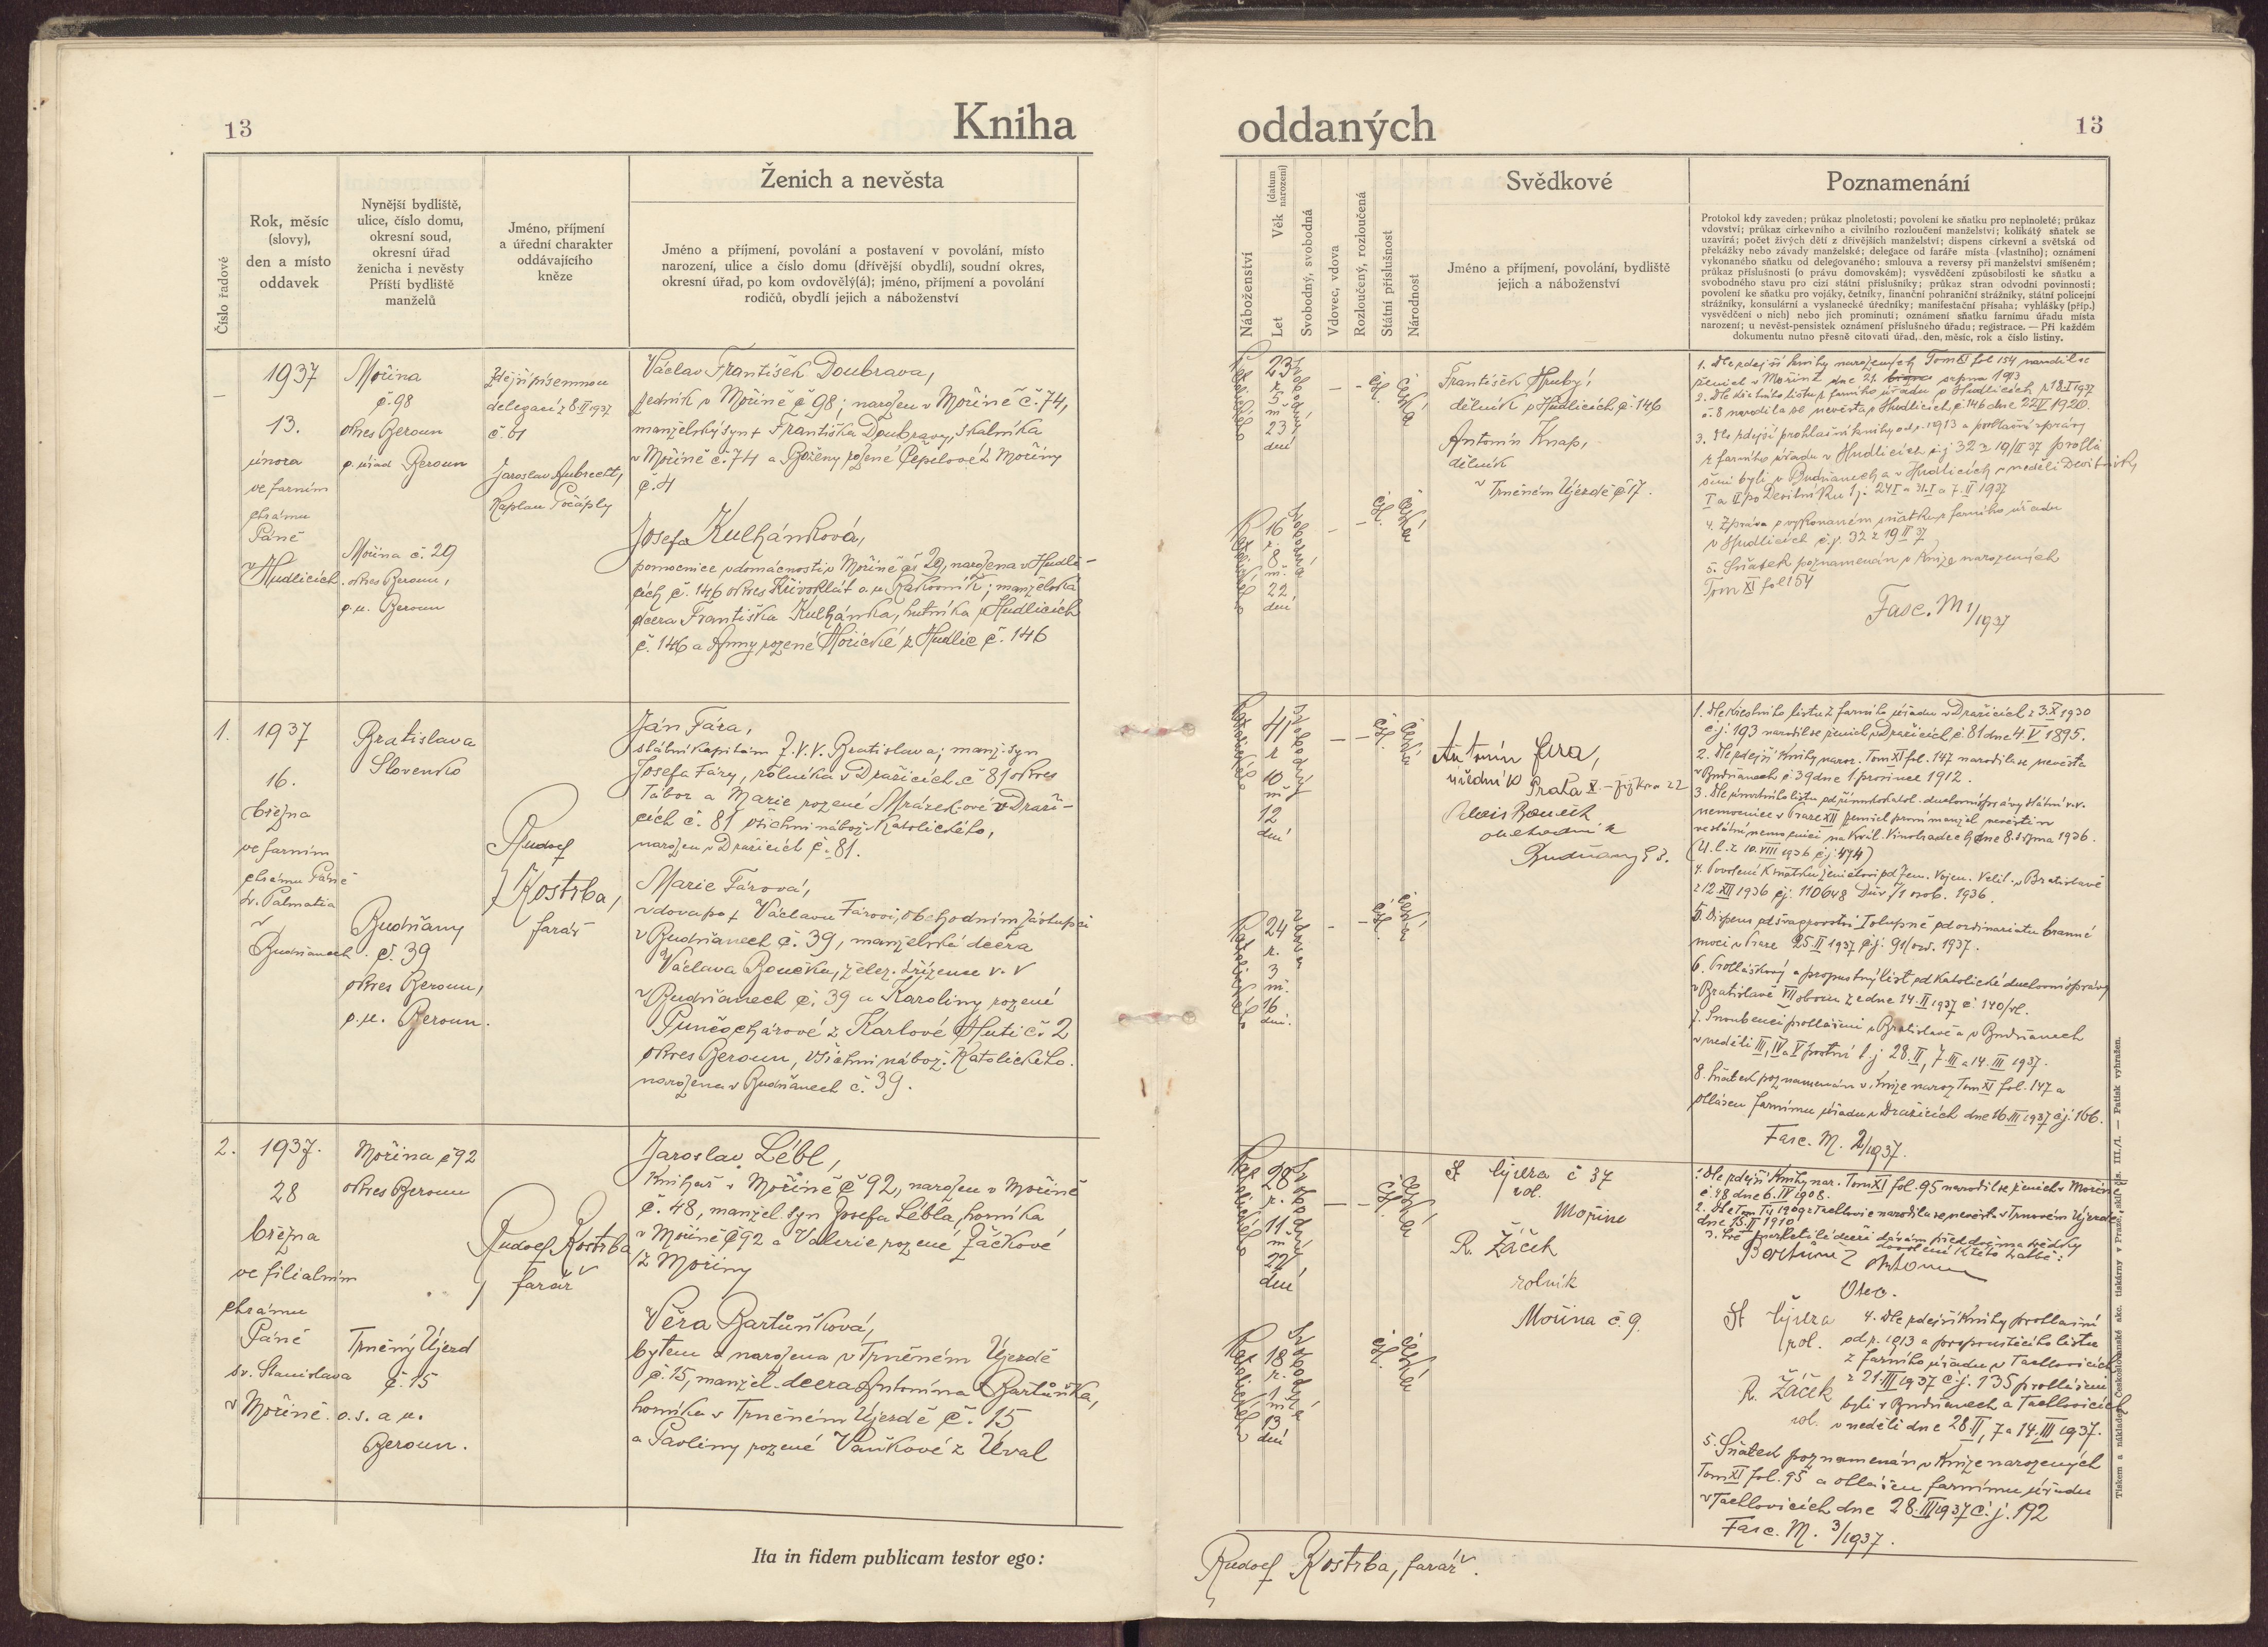 13
Kniha
Číslo řadové
Rok, měsíc
(slovy),
den a místo
oddavek
Nynější bydliště,
ulice, číslo domu,
okresní soud,
okresní úřad
ženicha i nevěsty
Příští bydliště
manželů
Jméno, příjmení
a úřední charakter
oddávajícího
kněze
Ženich a nevěsta
Jméno a příjmení, povolání a postavení v povolání, místo
narození, ulice a číslo domu (dřívější obydlí), soudní okres,
okresní úřad, po kom ovdověl(á); jméno, příjmení a povolání
rodičů, obydlí jejich a náboženství
–
1937
13.
února
ve farním
chrámu
Páně
v Hudlicích
Mořina
č. 98
okres Beroun
o. úřad Beroun
Mořina č. 29
okres Beroun,
o. ú. Beroun
Zdejší písemnou
delegací z 8.II 1937
č. 61
Jaroslav Aubrecht,
kaplan Počáply
Václav František Doubrava,
v Mořině č 98; narozen v Mořině č. 74,
manželský syn + Františka Doubravy, skalníka
v Mořině č. 74 a Boženy rozené Čepelové z Mořiny
č. 4
Josefa Kulhánková,
pomocnice v domácnosti v Mořině čís 29, narozena v Hudli-
cích č. 146 okres Křivoklát o. ú. Rakovník; manželská
dcera Františka Kulhánka, hutníka v Hudlicích
č. 146 a Anny rozené Hořické z Hudlic č. 146
1.
1937
16.
března
ve farním
chrámu Páně
sv. Palmatia
v
Budňanech
Bratislava
Slovensko
Budňany
č. 39
okres Beroun,
o. ú. Beroun.
Rudolf
Kostrba,
farář
Ján Fára,
štábní kapitán Z.V.V. Bratislava; manž. syn
Josefa Fáry, rolníka v Dražicích č 81 okres
Tábor a Marie rozené Mrázek-ové v Draži-
cích č. 81 všichni nábož. katolického,
narozen v Dražicích č. 81.
Marie Fárová,
vdova po + Václavu Fárovi, obchodním zástupci
v Budňanech č. 39, manželská dcera
Václava Boučka, želez. zřízence v. v
v Budňanech č. 39 a Karoliny rozené
Punčochárové z Karlové Huti č. 2
okres Beroun, všichni nábož. katolického.
narozena v Budňanech č. 39.
2.
1937.
28
března
ve filialním
chrámu
Páně
sv. Stanislava
v Mořině.
Mořina č 92
okres Beroun
Trněný Újezd
č. 15
o. s. a ú.
Beroun.
Rudolf Kostrba
farář
Jaroslav Lébl,
knihař v Mořině č 92, narozen v Mořině
č. 48, manžel. syn Josefa Lébla, horníka
v Mořině č 92 a Valerie rozené Žáčkové
z Mořiny
Věra Bartůňková,
bytem a narozena v Trněném Újezdě
č. 15, manžel. dcera Antonína Bartůňka,
horníka v Trněném Újezdě č. 15
a Pavliny rozené Vaňkové z Úval
Ita in fidem publicam testor ego:
oddaných
13
Náboženství
Let Věk (datum narození)
Svobodný, svobodná
Vdovec, vdova
Rozloučený, rozloučená
Státní příslušnost
Národnost
Svědkové
Jméno a příjmení, povolání, bydliště
jejich a náboženství
Poznamenání
Protokol kdy zaveden; průkaz plnoletosti; povolení ke sňatku pro neplnoleté; průkaz
vdovství; průkaz církevního a civilního rozloučení manželství; kolikátý sňatek se
uzavírá; počet živých dětí z dřívějších manželství; dispens církevní a světská od
překážky nebo závady manželské; delegace od faráře místa (vlastního); oznámení
vykonaného sňatku od delegovaného; smlouva a reversy při manželství smíšeném;
průkaz příslušnosti (o právu domovském); vysvědčení způsobilosti ke sňatku a
svobodného stavu pro cizí státní příslušníky; průkaz stran odvodní povinnosti;
povolení ke sňatku pro vojáky, četníky, finanční pohraniční strážníky, státní policejní
strážníky, konsulární a vyslanecké úředníky; manifestační přísaha; vyhlášky (příp.)
vysvědčení o nich) nebo jich prominutí; oznámení sňatku farnímu úřadu místa
narození; u nevěst-pensistek oznámení příslušného úřadu; registrace. — Při každém
dokumentu nutno přesně citovati úřad, den, měsíc, rok a číslo listiny.
Katolické
23
r.
5
m
23
dní
Svobodný
– –
Čsl.
česká
Katolické
16
r.
8
m.
22
dní
Svobodná
– –
Čsl.
česká
František Hrubý,
dělník v Hudlicích č. 146
Antonín Knap,
dělník
v Trněném Újezdě č 17.
1. Dle zdejší knihy narozených Tom XI fol 154 narodil se
ženich v Mořině dne 21. srpna 1913
2. Dle křestního listu z farního úřadu v Hudlicích z 18.I 1937
č. 8 narodila se nevěsta v Hudlicích č. 146 dne 22.V 1920.
3. Dle zdejší prohlašní knihy od r. 1913 a prohlašní zprávy
z farního úřadu v Hudlicích čj 32 z 19/II 37 prohlá
šeni byli v Budňanech a v Hudlicích v neděli Devítník,
I a II po Devítníku t.j. 24 I a 31.I a 7.II 1937
4. Zpráva o vykonaném sňatku z farního úřadu
v Hudlicích čj. 32 z 19 II 37
5. Sňatek poznamenán v knize narozených
Tom XI fol 154
Fasc. M 1/1937
Katolické
41
r
10
m
12
dní
Svobodný
– –
Čsl.
česká
Katolické
24
r.
3
m.
16
dní.
Vdova
– –
Čsl.
česká
Antonín Fára,
úředník Praha
Alois Bouček
obchodník
Budňany
1. Dle křestního listu z farního úřadu v Dražicích z 3.X 1930
č.j. 193 narodil se ženich v Dražicích č. 81 dne 4.V 1895.
2. Dle zdejší knihy naroz. Tom XI fol. 147 narodila se nevěsta
v Budňanech č 39 dne 1. prosince 1912.
nemocnice v Praze XII zemřel první manžel nevěstin
ve státní nemocnici na Král. Vinohradech dne 8. srpna 1936.
(Ú.l. z 10.VIII 1936 čj. 474)
4. Povolení k sňatku ženichovi od Zem. Vojen. Velit. v Bratislavě
z 12.XII 1936 čj. 110648 Dův. 1/1 osob. 1936.
5. Dispens od švagrovství I stupně od ordinariatu branné
moci v Praze 25.II 1937 čj. 91/ord. 1937.
6. Prohláškový a propustný list od katolické duchovní správy
v Bratislavě VII oboru ze dne 14.II 1937 č 140/vl.
7. Snoubenci prohlášeni v Bratislavě a v Budňanech
v neděli III, IV a V postní t.j 28.II, 7.III a 14.III 1937.
8. Sňatek poznamenán v knize naroz Tom XI fol. 147 a
ohlášen farnímu úřadu v Dražicích dne 16.III 1937 čj. 166.
Fasc. M. 2/1937.
Katolické
28
r.
11
m
22
dní
Svobodný
– –
Čsl.
česká
Katolické
18
r.
1
m
13
dní
Svobodná
Čsl.
česká
č 37
rol.
Mořine
R. Žáček
rolník
Mořina č. 9.
1. Dle zdejší knihy nar. Tom XI fol. 95 narodil se ženich v Mořině
č. 48 dne 6.IV 1908.
dne 15.II 1910
3. Své nezletilé dceři dávám před dvěma svědky
dovolení k této svatbě:
Bartůněk Antonín
Otec.
rol.
R. Žáček
rol.
4. Dle zdejší knihy prohlašní
od r. 1913 a propouštěcího listu
z farního úřadu v Tachlovicích
z 21.III 1937 č.j. 135 prohlášeni
byli v Budňanech a Tachlovicích
v neděli dne 28.II, 7 a 14.III 1937.
5. Sňatek poznamenán v knize narozených
Tom XI fol. 95 a ohlášen farnímu úřadu
v Tachlovicích dne 28.III 1937 č.j. 192
Fasc. M. 3/1937.
Rudolf Kostrba, farář.
Tiskem a nákladem Českoslovanské akc. tiskárny v Praze, sklř. čís. III./1. — Patisk vyhražen.